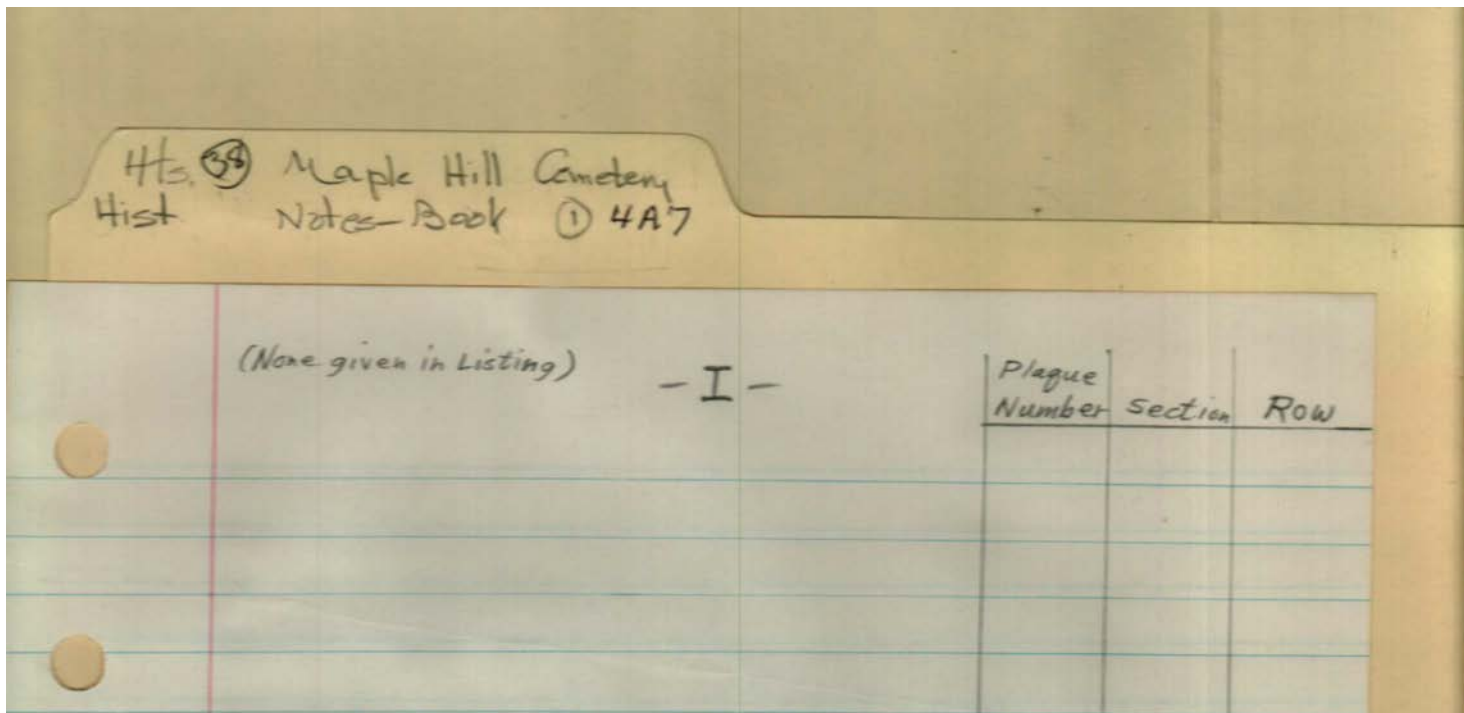 Hts. 38 Maple Hill Cemetery
Hist Notes-Book 1 4A7
(None given in Listing)
- I -
Plaque
Number Section Row